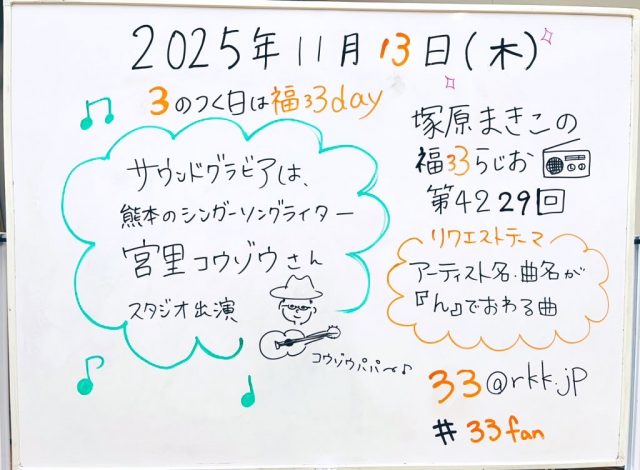 2025年11月13日(木)
3のつく日は福33day
塚原まきこの
福33らじお
第4229回
サウンドグラビアは、
熊本のシンガーソングライター
宮里コウゾウさん
スタジオ出演
コウゾウパパ〜♪
リクエストテーマ
アーティスト名・曲名が
『ん』でおわる曲
33@rkk.jp
#33fan